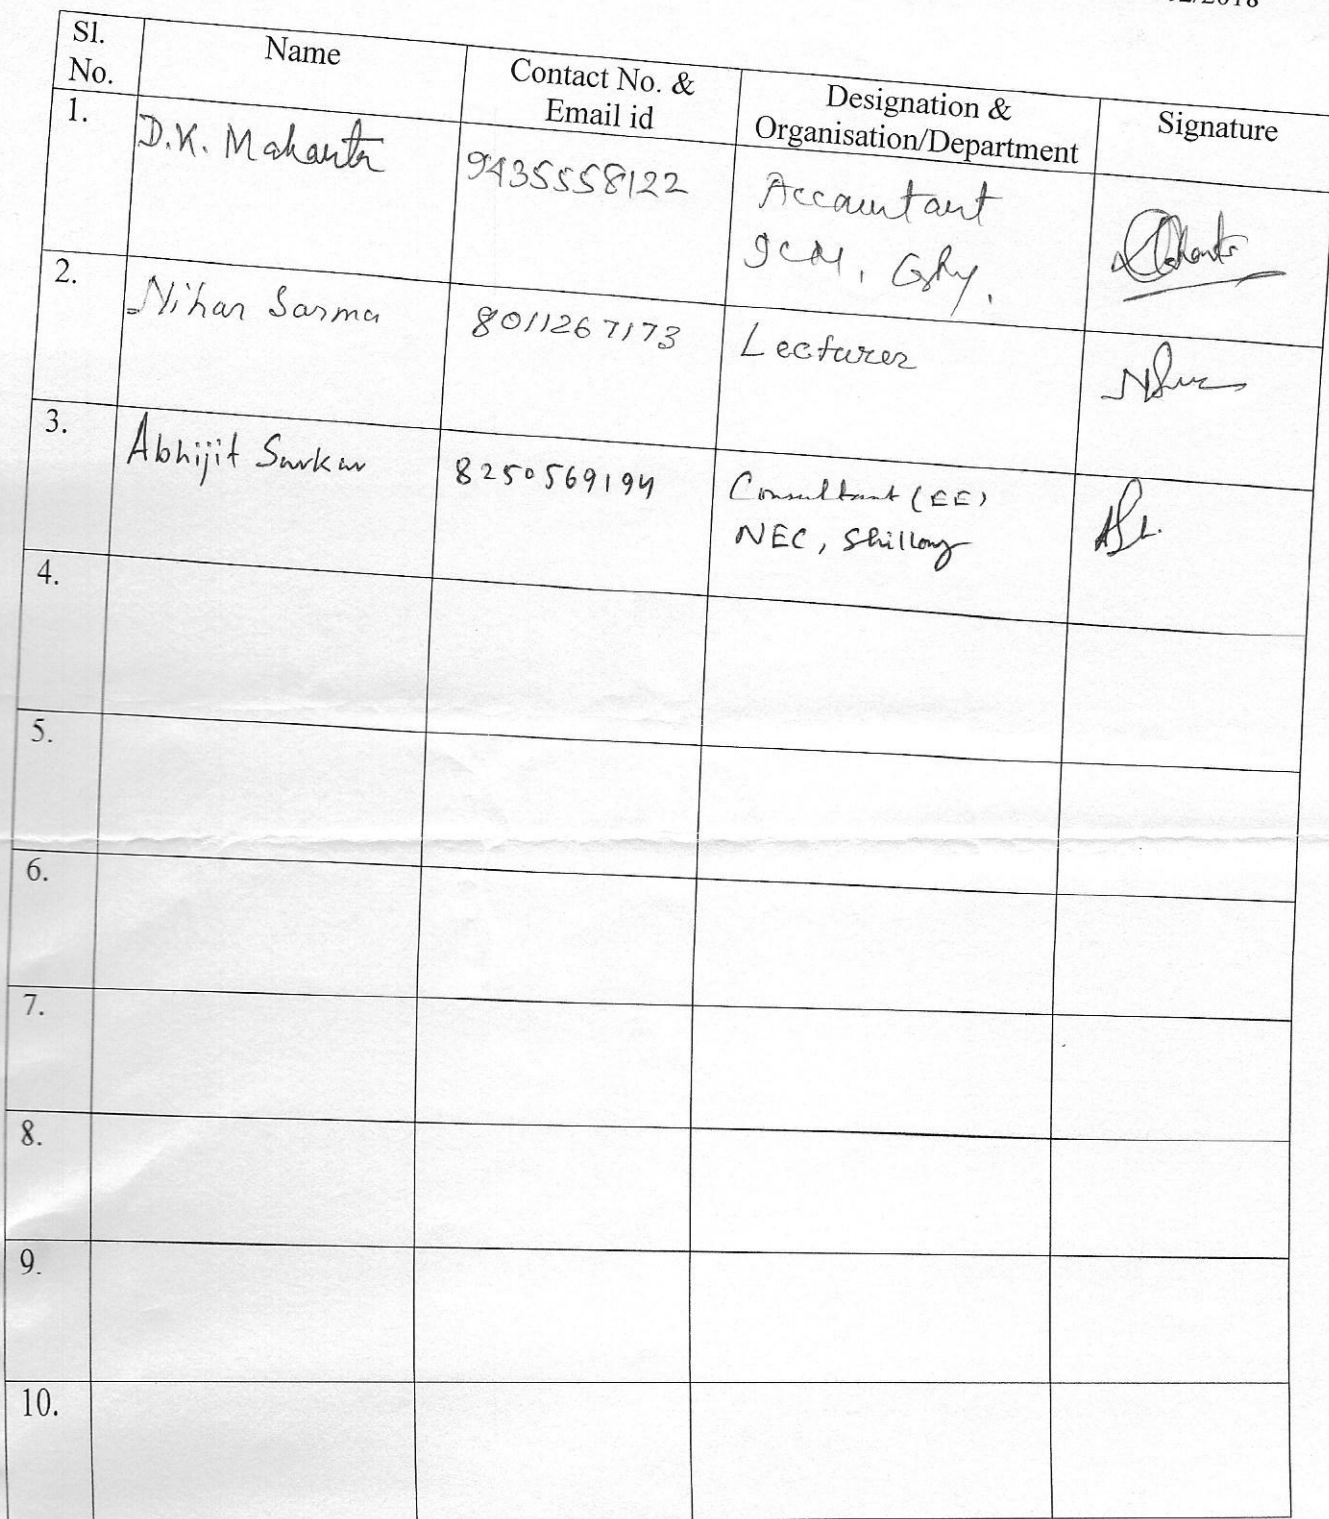 02/2018
Sl. No. Name Contact No. & Email id Designation & Organisation/Department Signature
1. D.K. Mahanta 9435558122 Accountant ICM, Ghy.
2. Nihar Sarma 8011267173 Lecturer
3. Abhijit Sarkar 8250569194 Consultant (EE) NEC, Shillong
4.
5.
6.
7.
8.
9.
10.